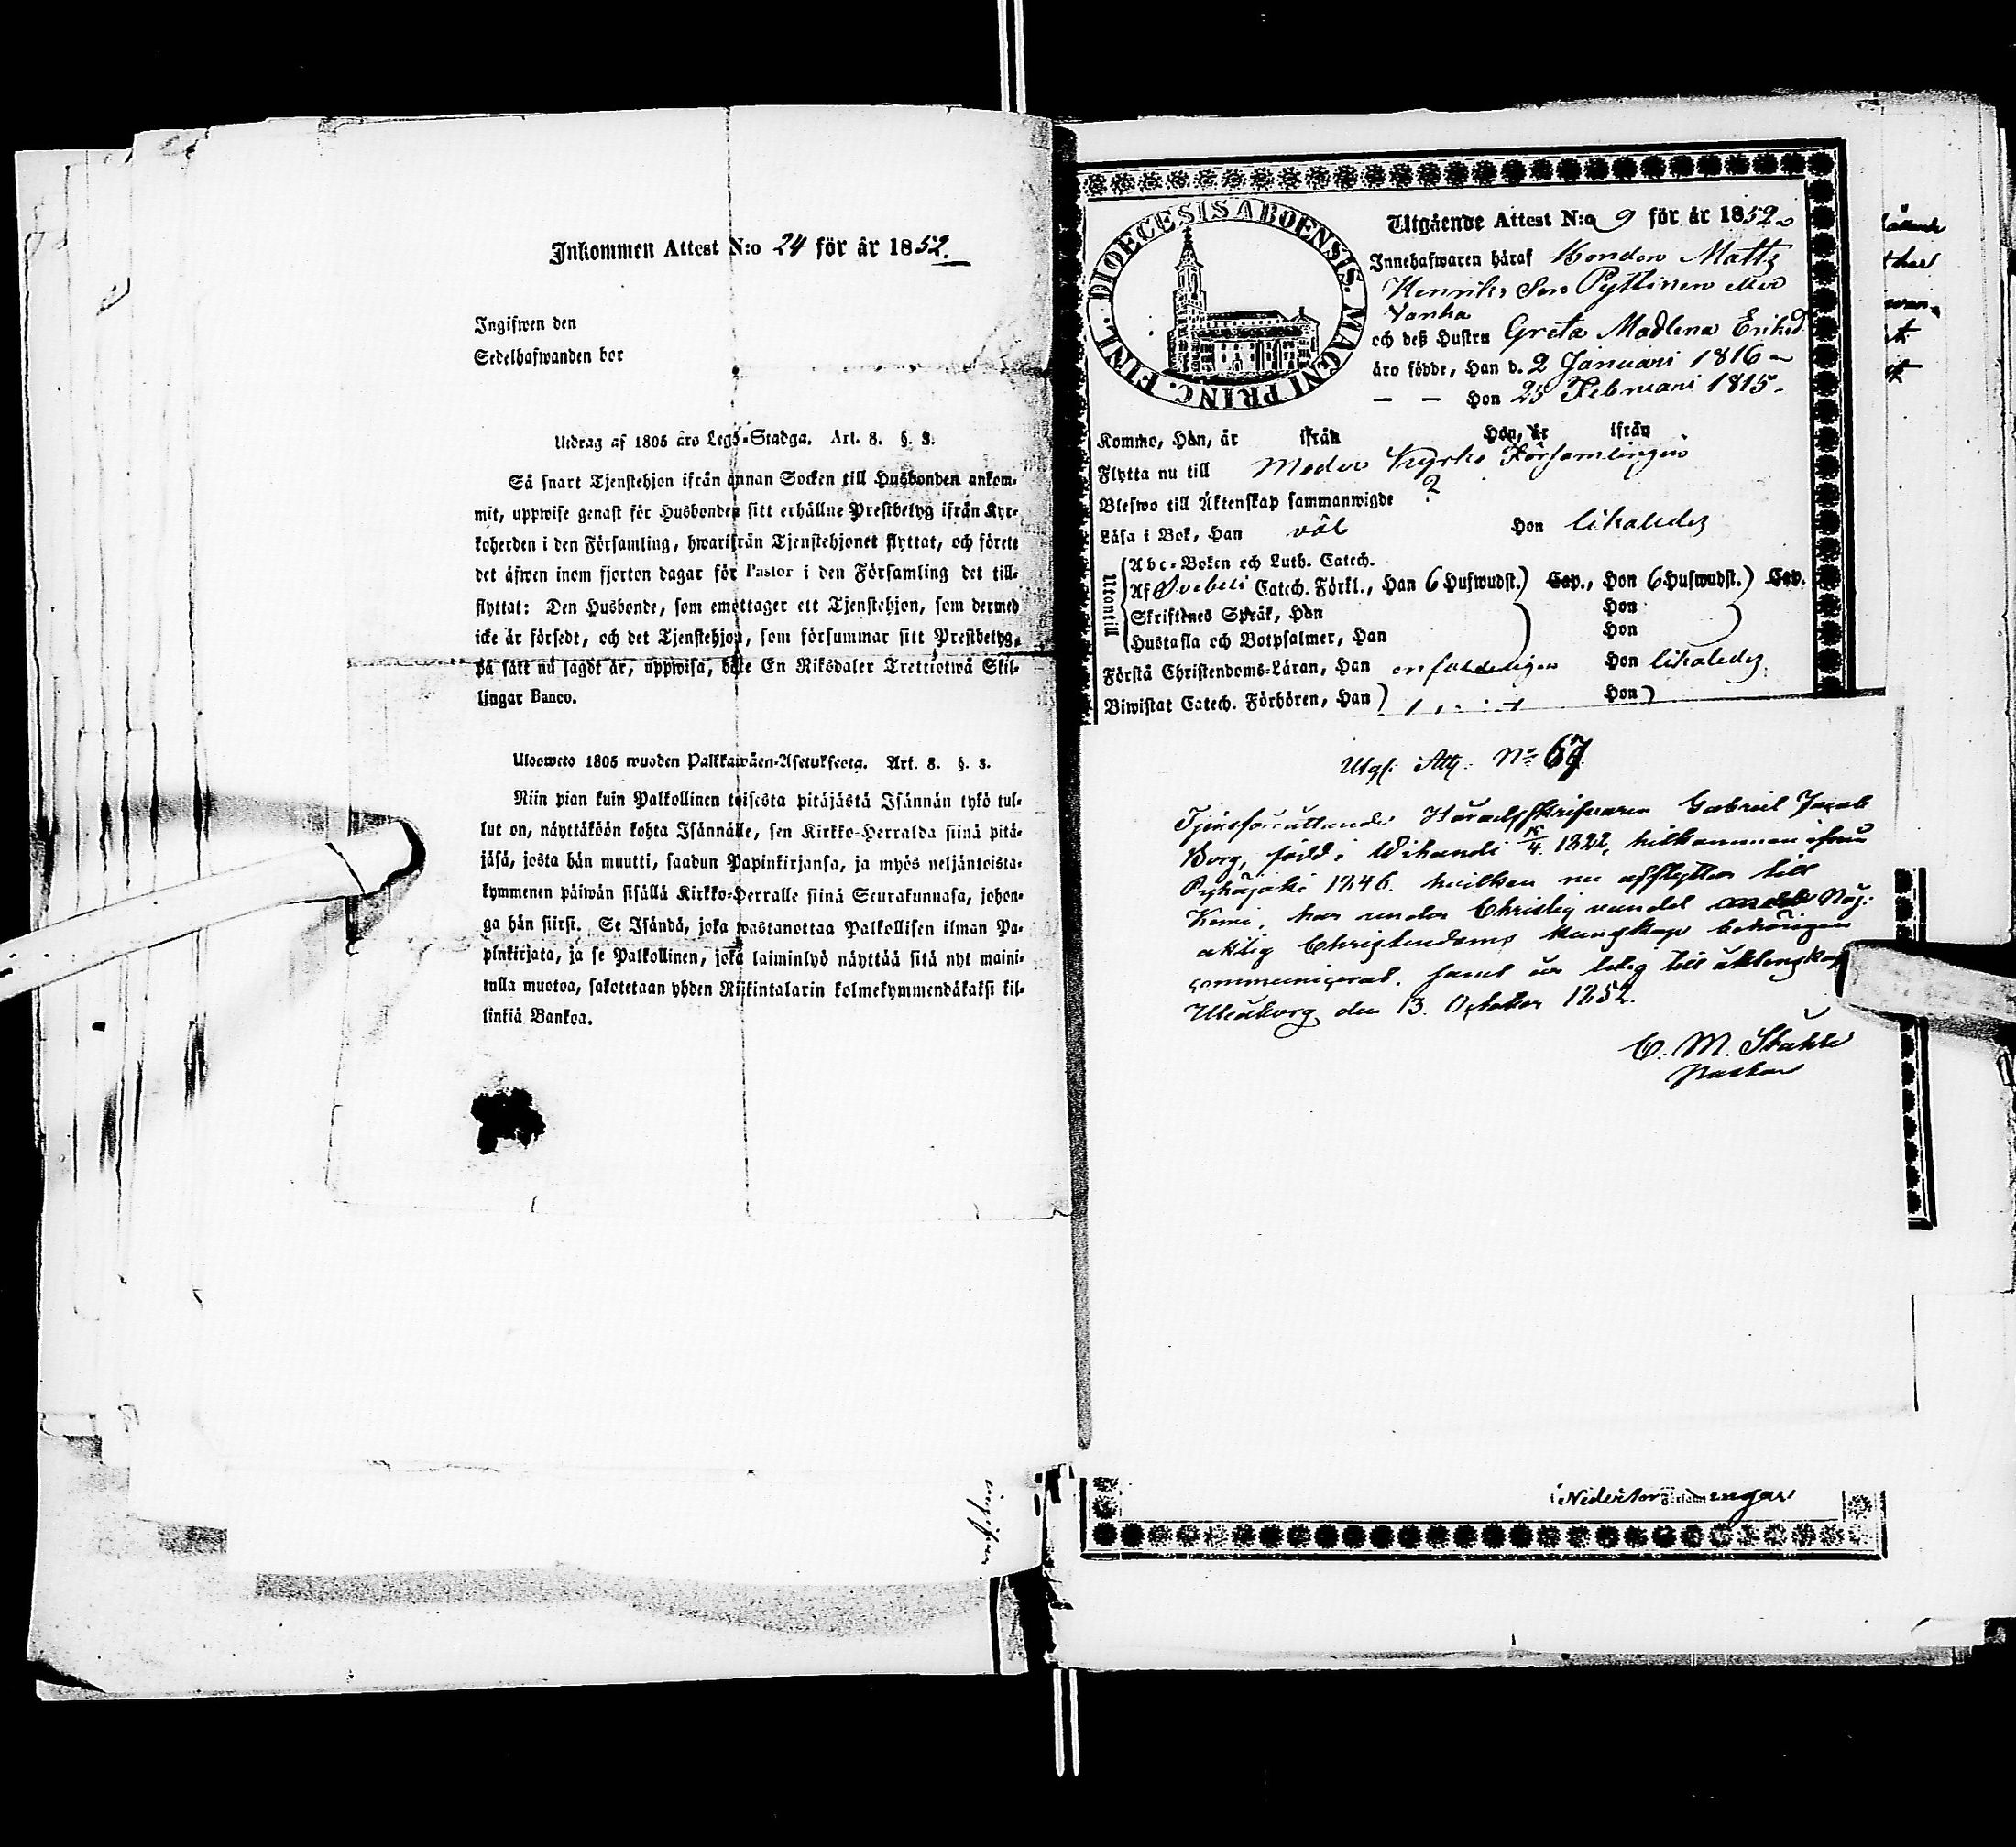 Inkommen Attest N:o 24 för år 1852.
Ingifwen den
Sedelhafwanden bor
Utdrag af 1805 års Lego-Stadga. Art. 8. §. 3.
Så snart Tjenstehjon ifrån annan Socken till Husbonden ankom-
mit, uppwise genast för Husbonden sitt erhållne Prestbetyg ifrån Kyr-
koherden i den Församling, hwarifrån Tjenstehjonet flyttat, och förete
det äfwen inom fjorton dagar för Pastor i den Församling det till-
flyttat: Den Husbonde, som emottager ett Tjenstehjon, som dermed
icke är försedt, och det Tjenstehjon, som försummar sitt Prestbetyg,
på sätt nu sagdt är, uppwisa, böte En Riksdaler Trettiotwå Skil-
lingar Banco.
Ulosweto 1805 wuoden Palkkawäen-Asetuksesta. Art. 8. §. 3.
Niin pian kuin Palkollinen toisesta pitäjästä Isännän tykö tul-
lut on, näyttäköön kohta Isännälle, sen Kirkko-Herralda siinä pitä-
jäsä, josta hän muutti, saadun Papinkirjansa, ja myös neljäntoista-
kymmenen päiwän sisällä Kirkko-Herralle siinä Seurakunnasa, johon-
ga hän siirsi. Se Isändä, joka wastanottaa Palkollisen ilman Pa-
pinkirjata, ja se Palkollinen, joka laiminlyö näyttää sitä nyt maini-
tulla muotoa, sakotetaan yhden Riikintalarin kolmekymmendäkaksi kil-
linkiä Bankoa.
DIOECESIS ABOENSIS. MAGNI PRINC. FINL.
Utgående Attest N:o 9 för år 1852
Innehafwaren häraf Bonden Matts
Henriks Son Pyttinen
Vanha
och deß Hustru Greta Madlena Eriksd.
äro födde, Han d. 2 Januari 1816
— — Hon 25 Februari 1815
Kommo, Han, år ifrån Hon, år ifrån
Flytta nu till Moder Kyrko Församlingen
Blefwo till Äktenskap sammanwigde ?
Läsa i Bok, Han väl Hon likaledes
Utantill
Abc-Boken och Luth. Catech.
Af Svebelii Catech. Förkl., Han 6 Hufwudst.) Cap., Hon 6 Hufwudst.) Cap.
Skriftenes Språk, Han Hon
Hustafla och Botpsalmer, Han Hon
Förstå Christendoms-Läran, Han enfaldeligen Hon likaledes
Biwistat Catech. Förhören, Han Hon
Utgf: Att: No 67
Tjensförrättande Häradsskrifvaren Gabriel Jacob
Borg, född i Vihandi 15/4 1822, hitkommen ifrån
Pyhäjoki 1846. hvilken nu afflyttar till
Kemi, har under Christlig vandel Nöj-
aktig Christendoms kunskap behörigen
communicerat, samt är ledig till äktenskap
Uleåborg den 13. October 1852.
C. M. Ståhle
Pastor